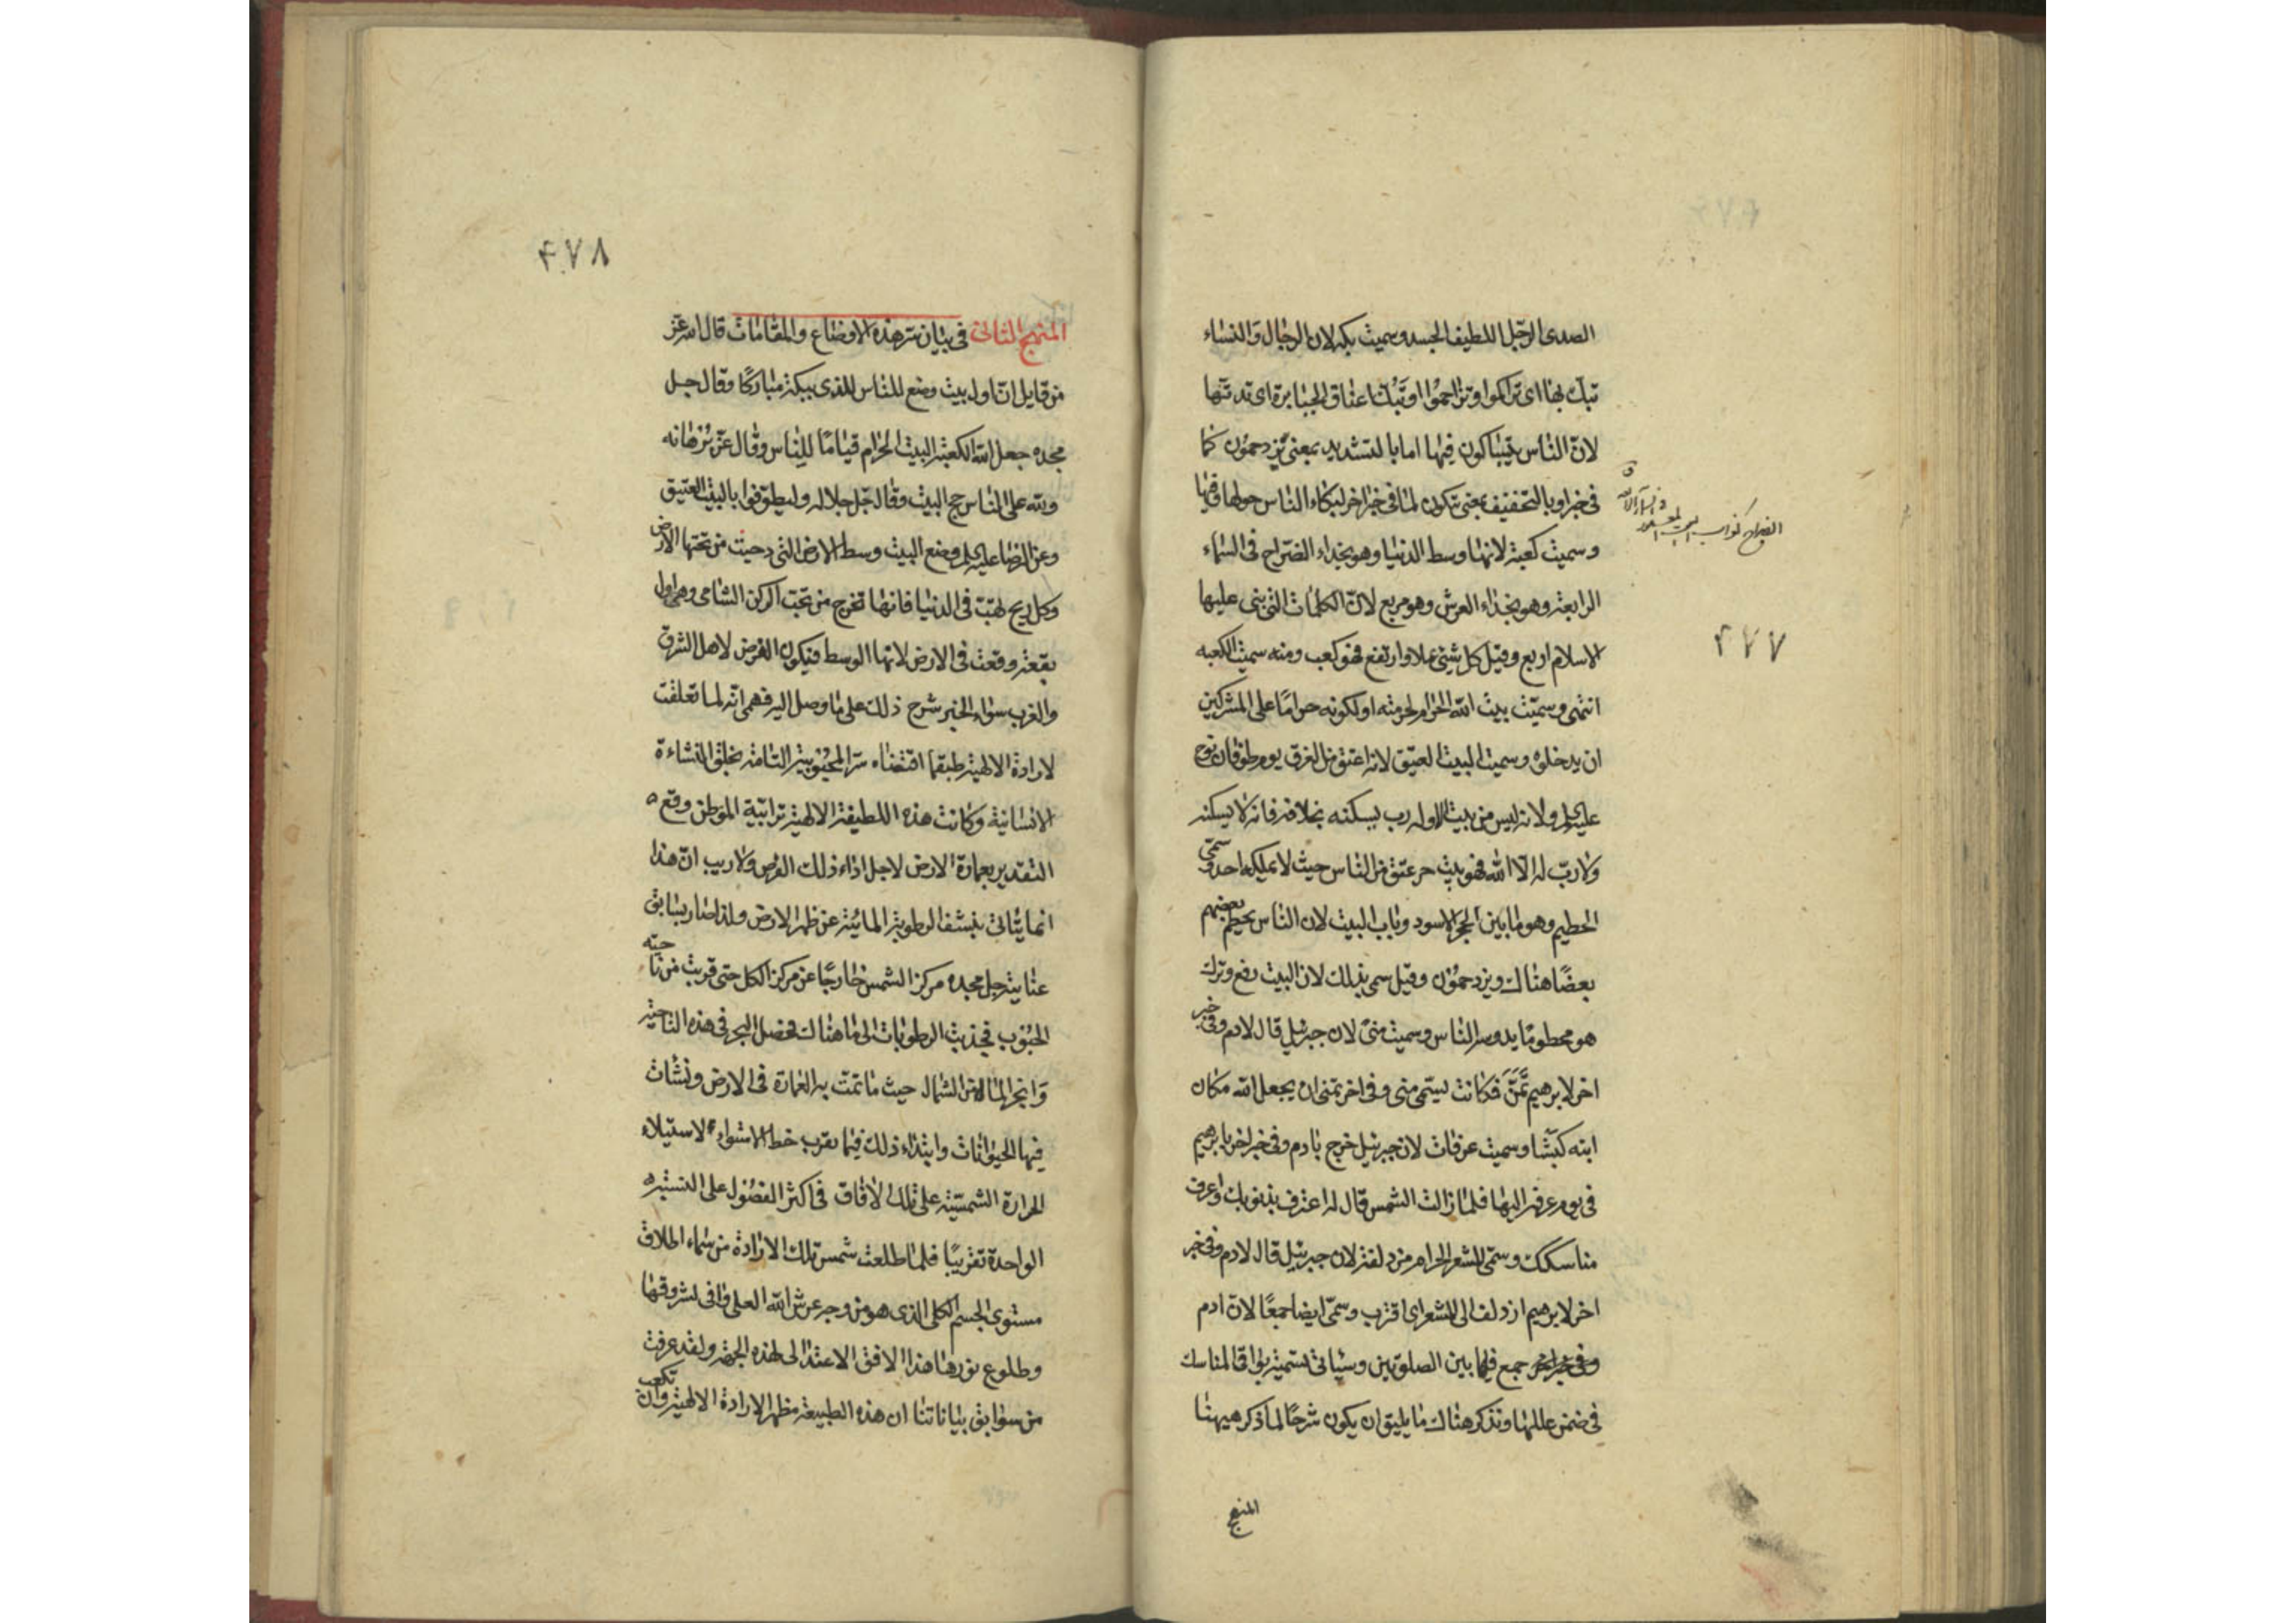 الصدى الرجل اللطيف الجسد وسميت بكه لان الرجال والنساء
تبك بها اى تراكموا وتزاحموا او تبك اعناق الجبابرة اى تدقها
لان الناس يتباكون فيها اما بالتشديد بمعنى يزدحمون كما
فى خبر او بالتخفيف بمعنى تكون لما فى خبر اخر لبكاء الناس حولها وفيها
وسميت كعبة لانها وسط الدنيا وهو بحذاء الضراح فى السماء
الرابعة وهو بحذاء العرش وهو مربع لان الكلمات التى بنى عليها
الاسلام اربع وقيل كل شئ علا وارتفع فهو كعب ومنه سميت الكعبه
انتهى وسميت بيت الله الحرام لحرمته او لكونه حراما على المشركين
ان يدخلوه وسميت البيت العتيق لانه اعتق من الغرق يوم طوفان نوح
عليه السلم ولانه ليس من بيت الا وله رب يسكنه بخلافه فانه لا يسكنه
ولا رب له الا الله فهو بيت حر عتق من الناس حيث لا يملكه احد وسمى
الحطيم وهو ما بين الحجر الاسود وباب البيت لان الناس يحطم بعضهم
بعضا هناك ويزدحمون وقيل سمى بذلك لان البيت رفع وترك
هو محطوما يدوسه الناس وسميت منى لان جبرئيل قال لادم وفى خبر
اخر لابرهيم تمن فكانت يسمى منى وفى اخر تمنى ان يجعل الله مكان
ابنه كبشا وسميت عرفات لان جبرئيل خرج بادم وفى خبر اخر بابرهيم
فى يوم عرفه اليها فلما زالت الشمس قال له اعترف بذنوبك واعرف
مناسكك وسمى المشعر الحرام مزدلفة لان جبرئيل قال لادم وفى خبر
اخر لابرهيم ازدلف الى المشعر اى اقترب وسمى ايضا جمعا لان ادم
جمع فيها بين الصلوتين وسياتى تسمية بواقى المناسك
فى ضمن عللها ونذكر هناك ما يليق ان يكون شرحا لما ذكر هيهنا
المنهج
الضراح كغراب البيت المعمور فى السماء الرابعة
٤٧٧
٤٧٨
المنهج الثانى فى بيان سر هذه الاوضاع والمقامات قال الله عز
من قايل ان اول بيت وضع للناس للذى ببكة مباركا وقال جل
مجده جعل الله الكعبة البيت الحرام قياما للناس وقال عز برهانه
ولله على الناس حج البيت وقال جل جلاله وليطوفوا بالبيت العتيق
وعن الرضا عليه السلم وضع البيت وسط الارض التى دحيت من تحتها الارض
وكل ريح تهب فى الدنيا فانها تخرج من تحت الركن الشامى وهى اول
بقعة وقعت فى الارض لانها الوسط فيكون الفرض لاهل الشرق
والغرب سواء الخبر شرح ذلك على ما وصل اليه فهمى انه لما تعلقت
الارادة الالهية طبقما اقتضاه سر المحبوبية التامة بخلق النشاءة
الانسانية وكانت هذه اللطيفة الالهية ترابية الموطن وقع
التقدير بعمارة الارض لاجل اداء ذلك الفرض ولا ريب ان هذا
انما يتاتى بنشف الرطوبة المائية عن ظهر الارض ولذا صار بسابق
عناية جل مجده مركز الشمس خارجا عن مركز الكل حتى قربت من ناحية
الجنوب فجذبت الرطوبات الى ما هناك فحصل البحر فى هذه الناحية
وانجر الماء من الشمال حيث ما تمت به العمارة فى الارض ونشات
فيها الحيوانات وابتداء ذلك فيما يقرب خط الاستواء لاستيلاء
الحرارة الشمسية على تلك الافاق فى اكثر الفصول على النسبة
الواحدة تقريبا فلما طلعت شمس تلك الارادة من سماء اطلاق
مستوى الجسم الكلى الذى هو من وجه عرش الله العلى وافى لشروقها
وطلوع نورها هذا الافق الاعتدالى لهذه الجهة ولقد عرفت
من سوابق بياناتنا ان هذه الطبيعة مظهر الارادة الالهية وان تكعب